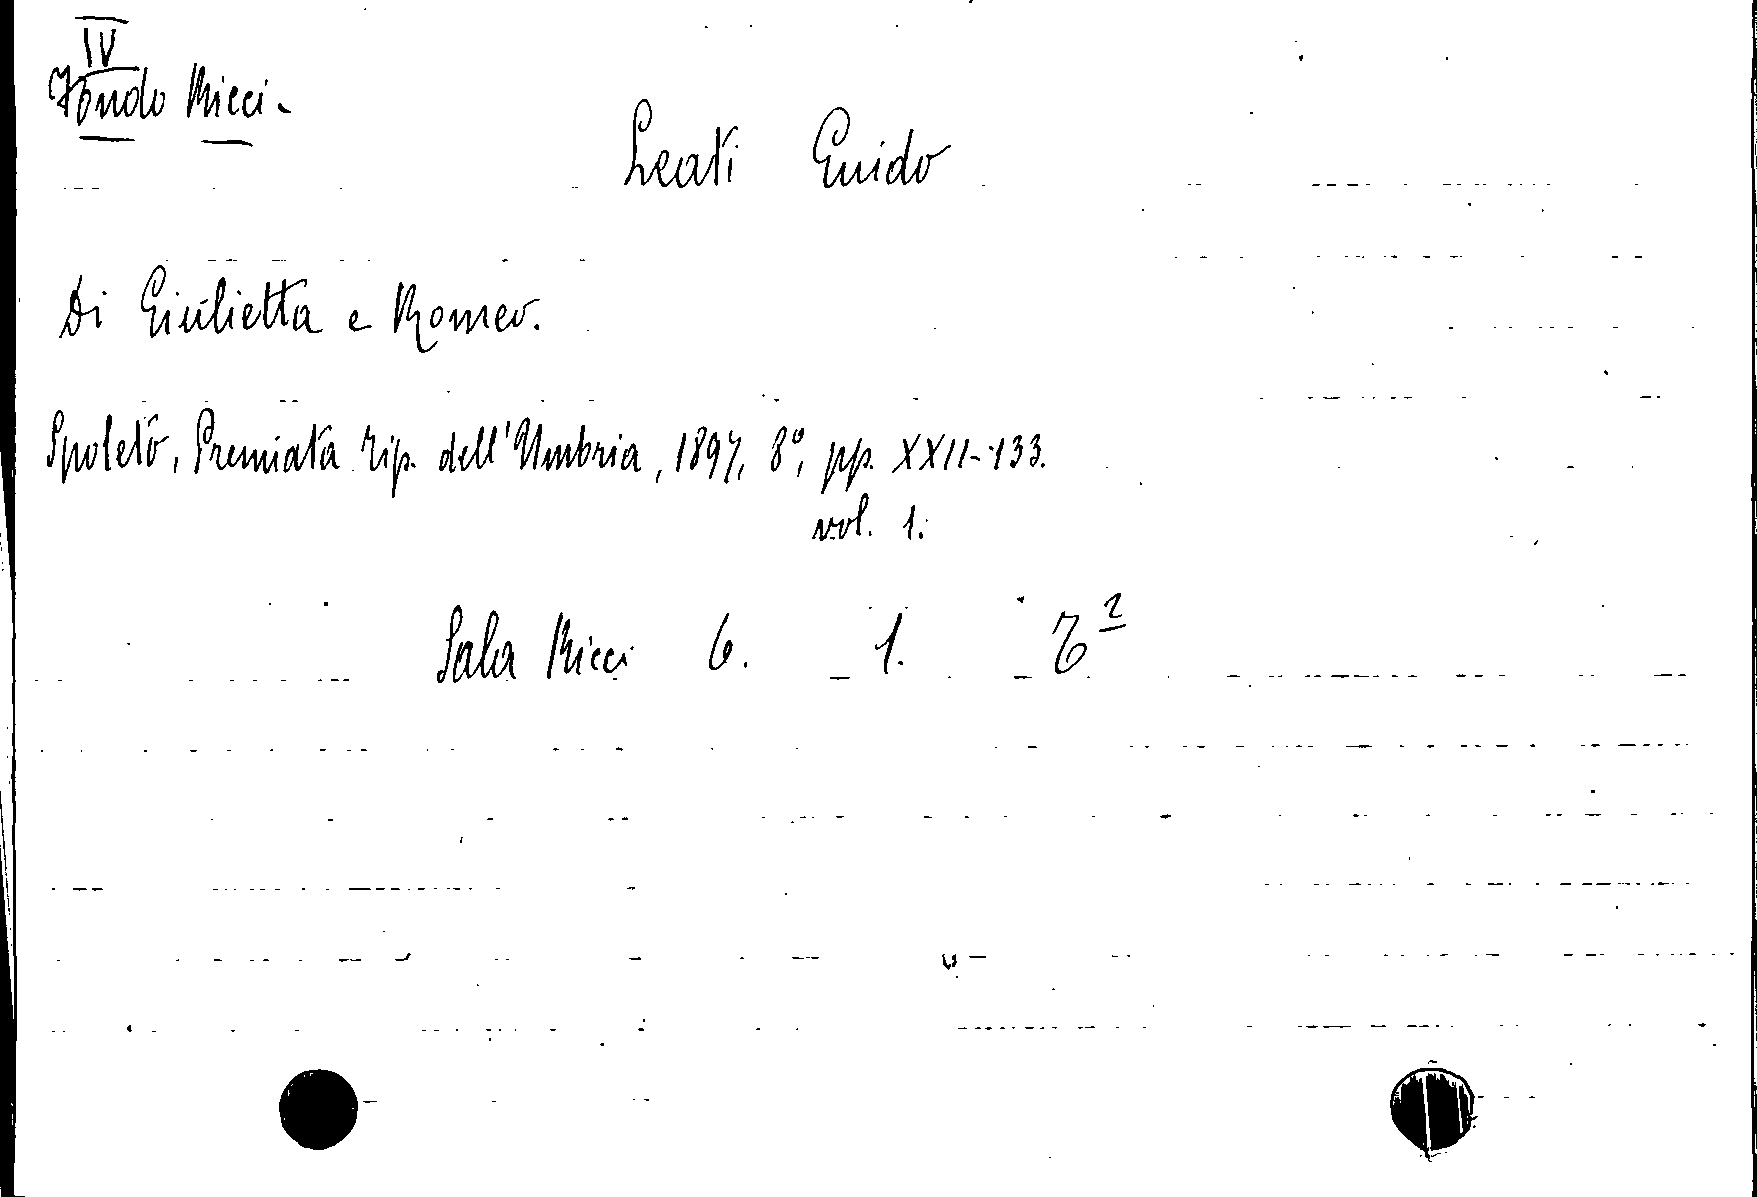 IV
Fondo Ricci.
Leati Guido
Di Giulietta e Romeo.
Spoleto, Premiata Tip. dell'Umbria, 1897, 8°, pp. XXII-133.
vol. 1.
Sala Ricci 6. 1.